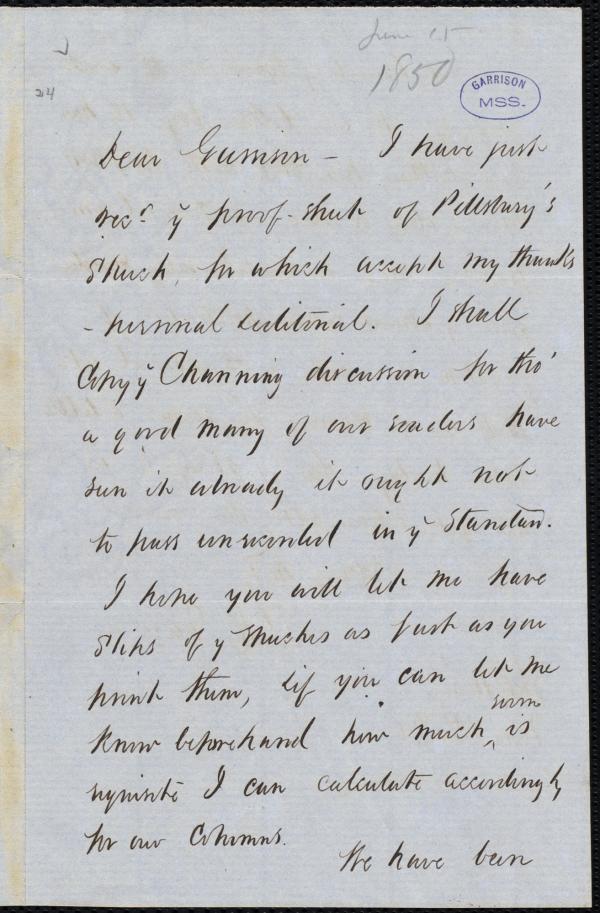 June 15
1850
GARRISON
MSS.
214
Dear Garrison – I have just
recd. ye proof-sheet of Pillsbury's
Speech, for which accept my thanks
– personal & editorial. I shall
Copy ye Channing discussion for tho'
a good many of our readers have
seen it already it ought not
to pass unrecorded in ye Standard.
I hope you will let me have
slips of ye Speeches as fast as you
print them, & if you can let me
know beforehand how much room is
requisite I can calculate accordingly
for our Columns.
We have been